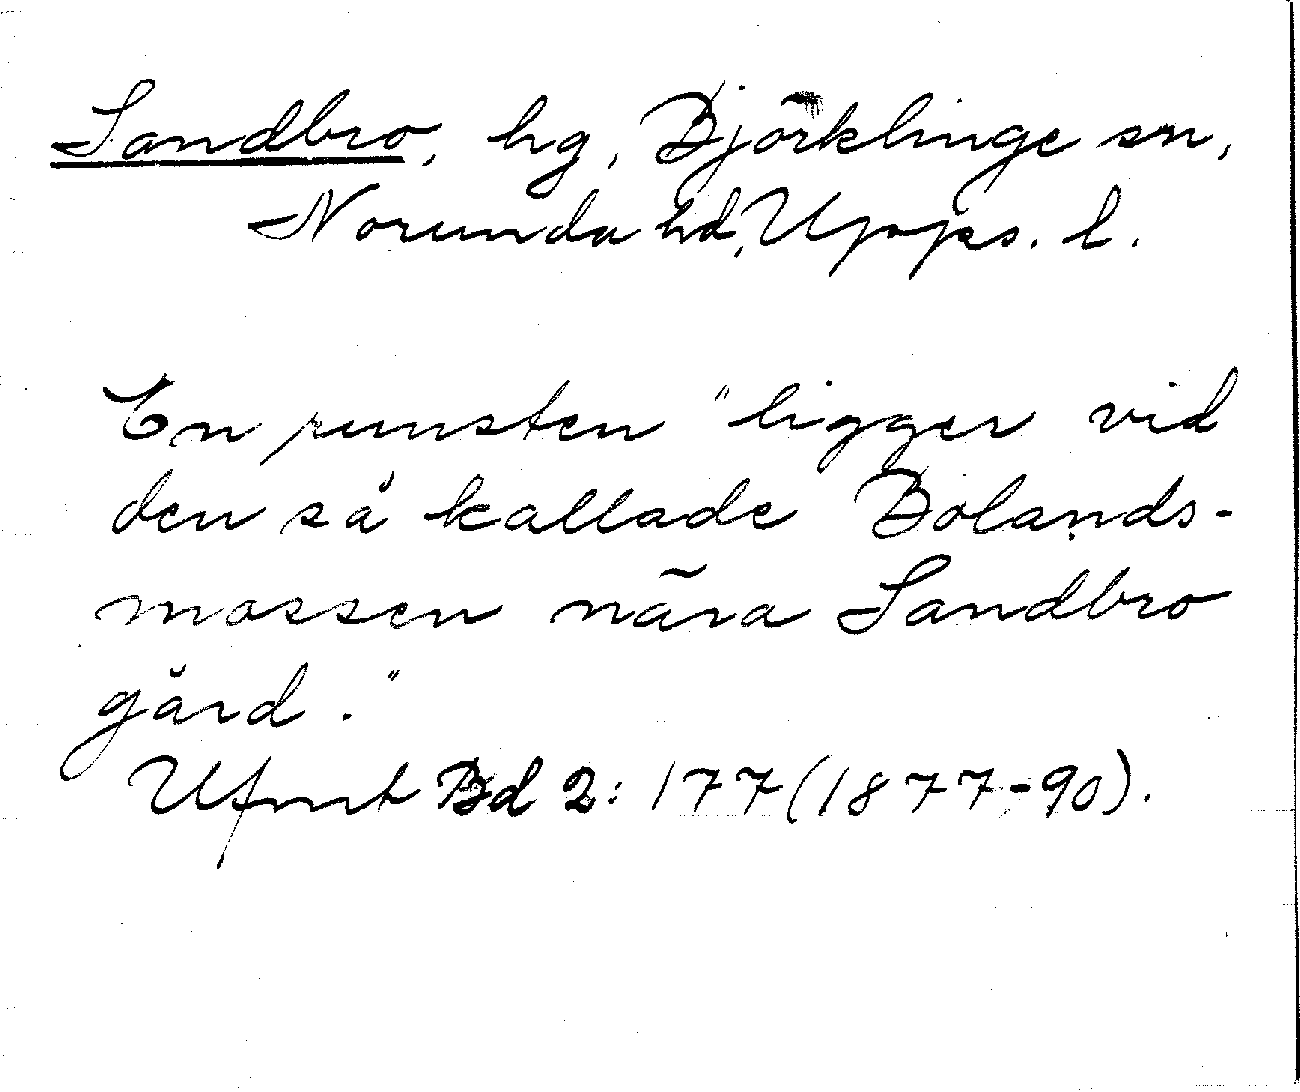 Sandbro, hg, Björklinge sn,
Norunda hd, Upps. l.
En runsten "ligger vid
den så kallade Bolands-
mossen nära Sandbro
gård."
Ufmt Bd 2: 177 (1877-90).